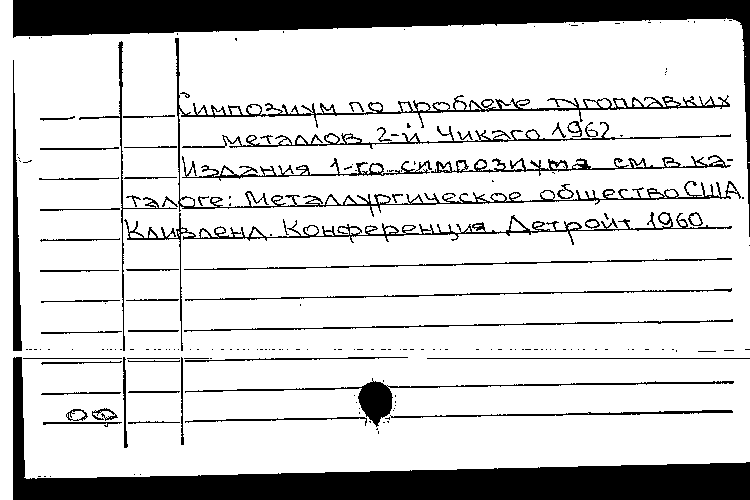 Симпозиум по проблеме тугоплавких
металлов, 2-й. Чикаго. 1962.
Издания 1-го симпозиума см. в ка-
талоге: Металлургическое общество США.
Кливленд. Конференция. Детройт 1960.
оф